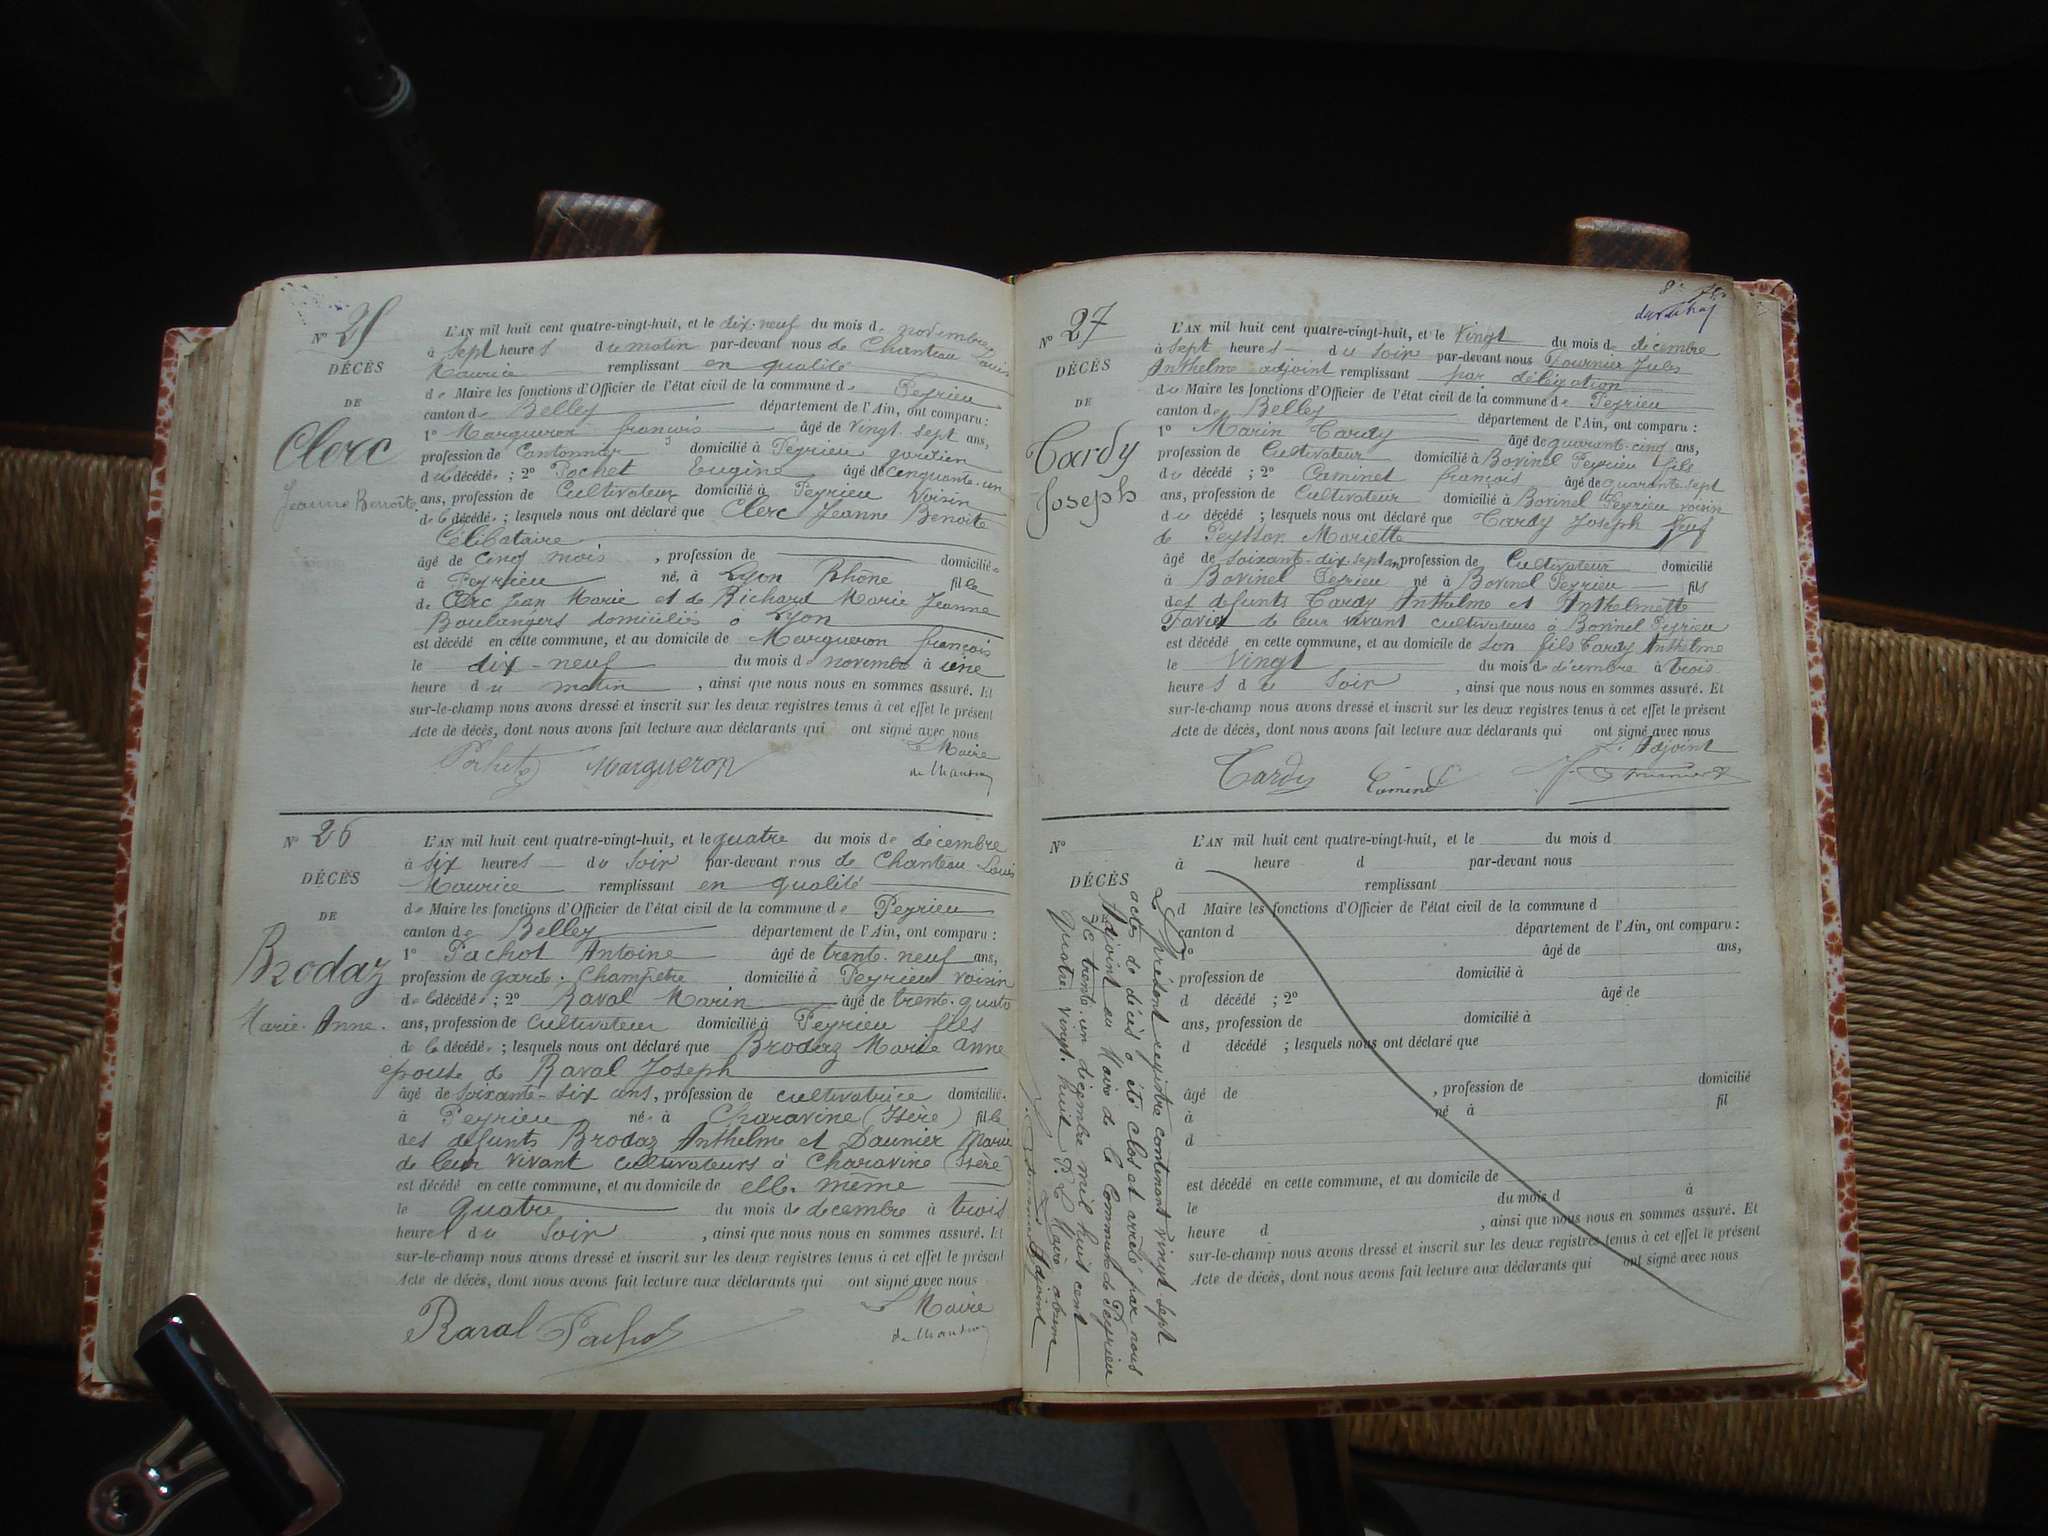 N° 25
DÉCÈS
DE
Clerc
Jeanne Benoîte
L'AN mil huit cent quatre-vingt-huit, et le dix-neuf du mois de novembre
à sept heures du matin par-devant nous de Chanteau Louis
Maurice remplissant en qualité
de Maire les fonctions d'Officier de l'état civil de la commune de Peyrieu
canton de Belley département de l'Ain, ont comparu :
1° Margueron françois âgé de vingt-sept ans,
profession de Cantonnier domicilié à Peyrieu gardien
de la décédée ; 2° Pochet Eugène âgé de cinquante-un
ans, profession de Cultivateur domicilié à Peyrieu voisin
de la décédée ; lesquels nous ont déclaré que Clerc Jeanne Benoîte
Célibataire
âgé de cinq mois , profession de domiciliée
à Peyrieu né, à Lyon Rhône fille
de Clerc Jean Marie et de Richard Marie Jeanne
Boulangers domiciliés à Lyon
est décédé en cette commune, et au domicile de Margueron françois
le dix-neuf du mois de novembre à une
heure du matin , ainsi que nous nous en sommes assuré. Et
sur-le-champ nous avons dressé et inscrit sur les deux registres tenus à cet effet le présent
Acte de décès, dont nous avons fait lecture aux déclarants qui ont signé avec nous
Le Maire
Pochet Margueron de Chanteau
N° 26
DÉCÈS
DE
Brodaz
Marie-Anne.
L'AN mil huit cent quatre-vingt-huit, et le quatre du mois de décembre
à six heures du soir par-devant nous de Chanteau Louis
Maurice remplissant en qualité
de Maire les fonctions d'Officier de l'état civil de la commune de Peyrieu
canton de Belley département de l'Ain, ont comparu :
1° Pachot Antoine âgé de trente-neuf ans,
profession de garde-Champêtre domicilié à Peyrieu voisin
de la décédée ; 2° Raval Marin âgé de trente-quatre
ans, profession de Cultivateur domicilié à Peyrieu fils
de la décédée ; lesquels nous ont déclaré que Brodaz Marie Anne
épouse de Raval Joseph
âgé de soixante-six ans, profession de cultivatrice domiciliée
à Peyrieu née à Charavine (Isère) fille
des défunts Brodaz Anthelme et Daunier Marie
de leur vivant cultivateurs à Charavine (Isère)
est décédé en cette commune, et au domicile de elle-même
le quatre du mois de décembre à trois
heures du soir , ainsi que nous nous en sommes assuré. Et
sur-le-champ nous avons dressé et inscrit sur les deux registres tenus à cet effet le présent
Acte de décès, dont nous avons fait lecture aux déclarants qui ont signé avec nous
Le Maire
Raval Pachot de Chanteau
N° 27
DÉCÈS
DE
Tardy
Joseph
L'AN mil huit cent quatre-vingt-huit, et le vingt du mois de décembre
à sept heures du soir par-devant nous Fournier Jules
Anthelme adjoint remplissant par délégation
du Maire les fonctions d'Officier de l'état civil de la commune de Peyrieu
canton de Belley département de l'Ain, ont comparu :
1° Marin Tardy âgé de quarante-cinq ans,
profession de Cultivateur domicilié à Bovinel Peyrieu fils
du décédé ; 2° Caminet françois âgé de quarante-sept
ans, profession de Cultivateur domicilié à Bovinel Peyrieu voisin
du décédé ; lesquels nous ont déclaré que Tardy Joseph veuf
de Peysson Mariette
âgé de soixante-dix-sept ans profession de Cultivateur domicilié
à Bovinel Peyrieu né à Bovinel Peyrieu fils
des défunts Tardy Anthelme et Anthelmette
Favier de leur vivant cultivateurs à Bovinel Peyrieu
est décédé en cette commune, et au domicile de son fils Tardy Anthelme
le vingt du mois de décembre à trois
heures du soir , ainsi que nous nous en sommes assuré. Et
sur-le-champ nous avons dressé et inscrit sur les deux registres tenus à cet effet le présent
Acte de décès, dont nous avons fait lecture aux déclarants qui ont signé avec nous
L'Adjoint
Tardy Caminet J. Fournier
N°
DÉCÈS
L'AN mil huit cent quatre-vingt-huit, et le du mois d
à heure d par-devant nous
remplissant
d Maire les fonctions d'Officier de l'état civil de la commune d
canton d département de l'Ain, ont comparu :
1° âgé de ans,
profession de domicilié à
d décédé ; 2° âgé de
ans, profession de domicilié à
d décédé ; lesquels nous ont déclaré que
âgé de , profession de domicilié
à né à fil
d
est décédé en cette commune, et au domicile de
le du mois d à
heure d , ainsi que nous nous en sommes assuré. Et
sur-le-champ nous avons dressé et inscrit sur les deux registres tenus à cet effet le présent
Acte de décès, dont nous avons fait lecture aux déclarants qui ont signé avec nous
Le présent registre contenant vingt sept
actes de décès a été clos et arrêté par nous
Adjoint au Maire de la Commune de Peyrieu
le trente-un décembre mil huit cent
quatre-vingt-huit P. le Maire absent
J. Fournier Adjoint